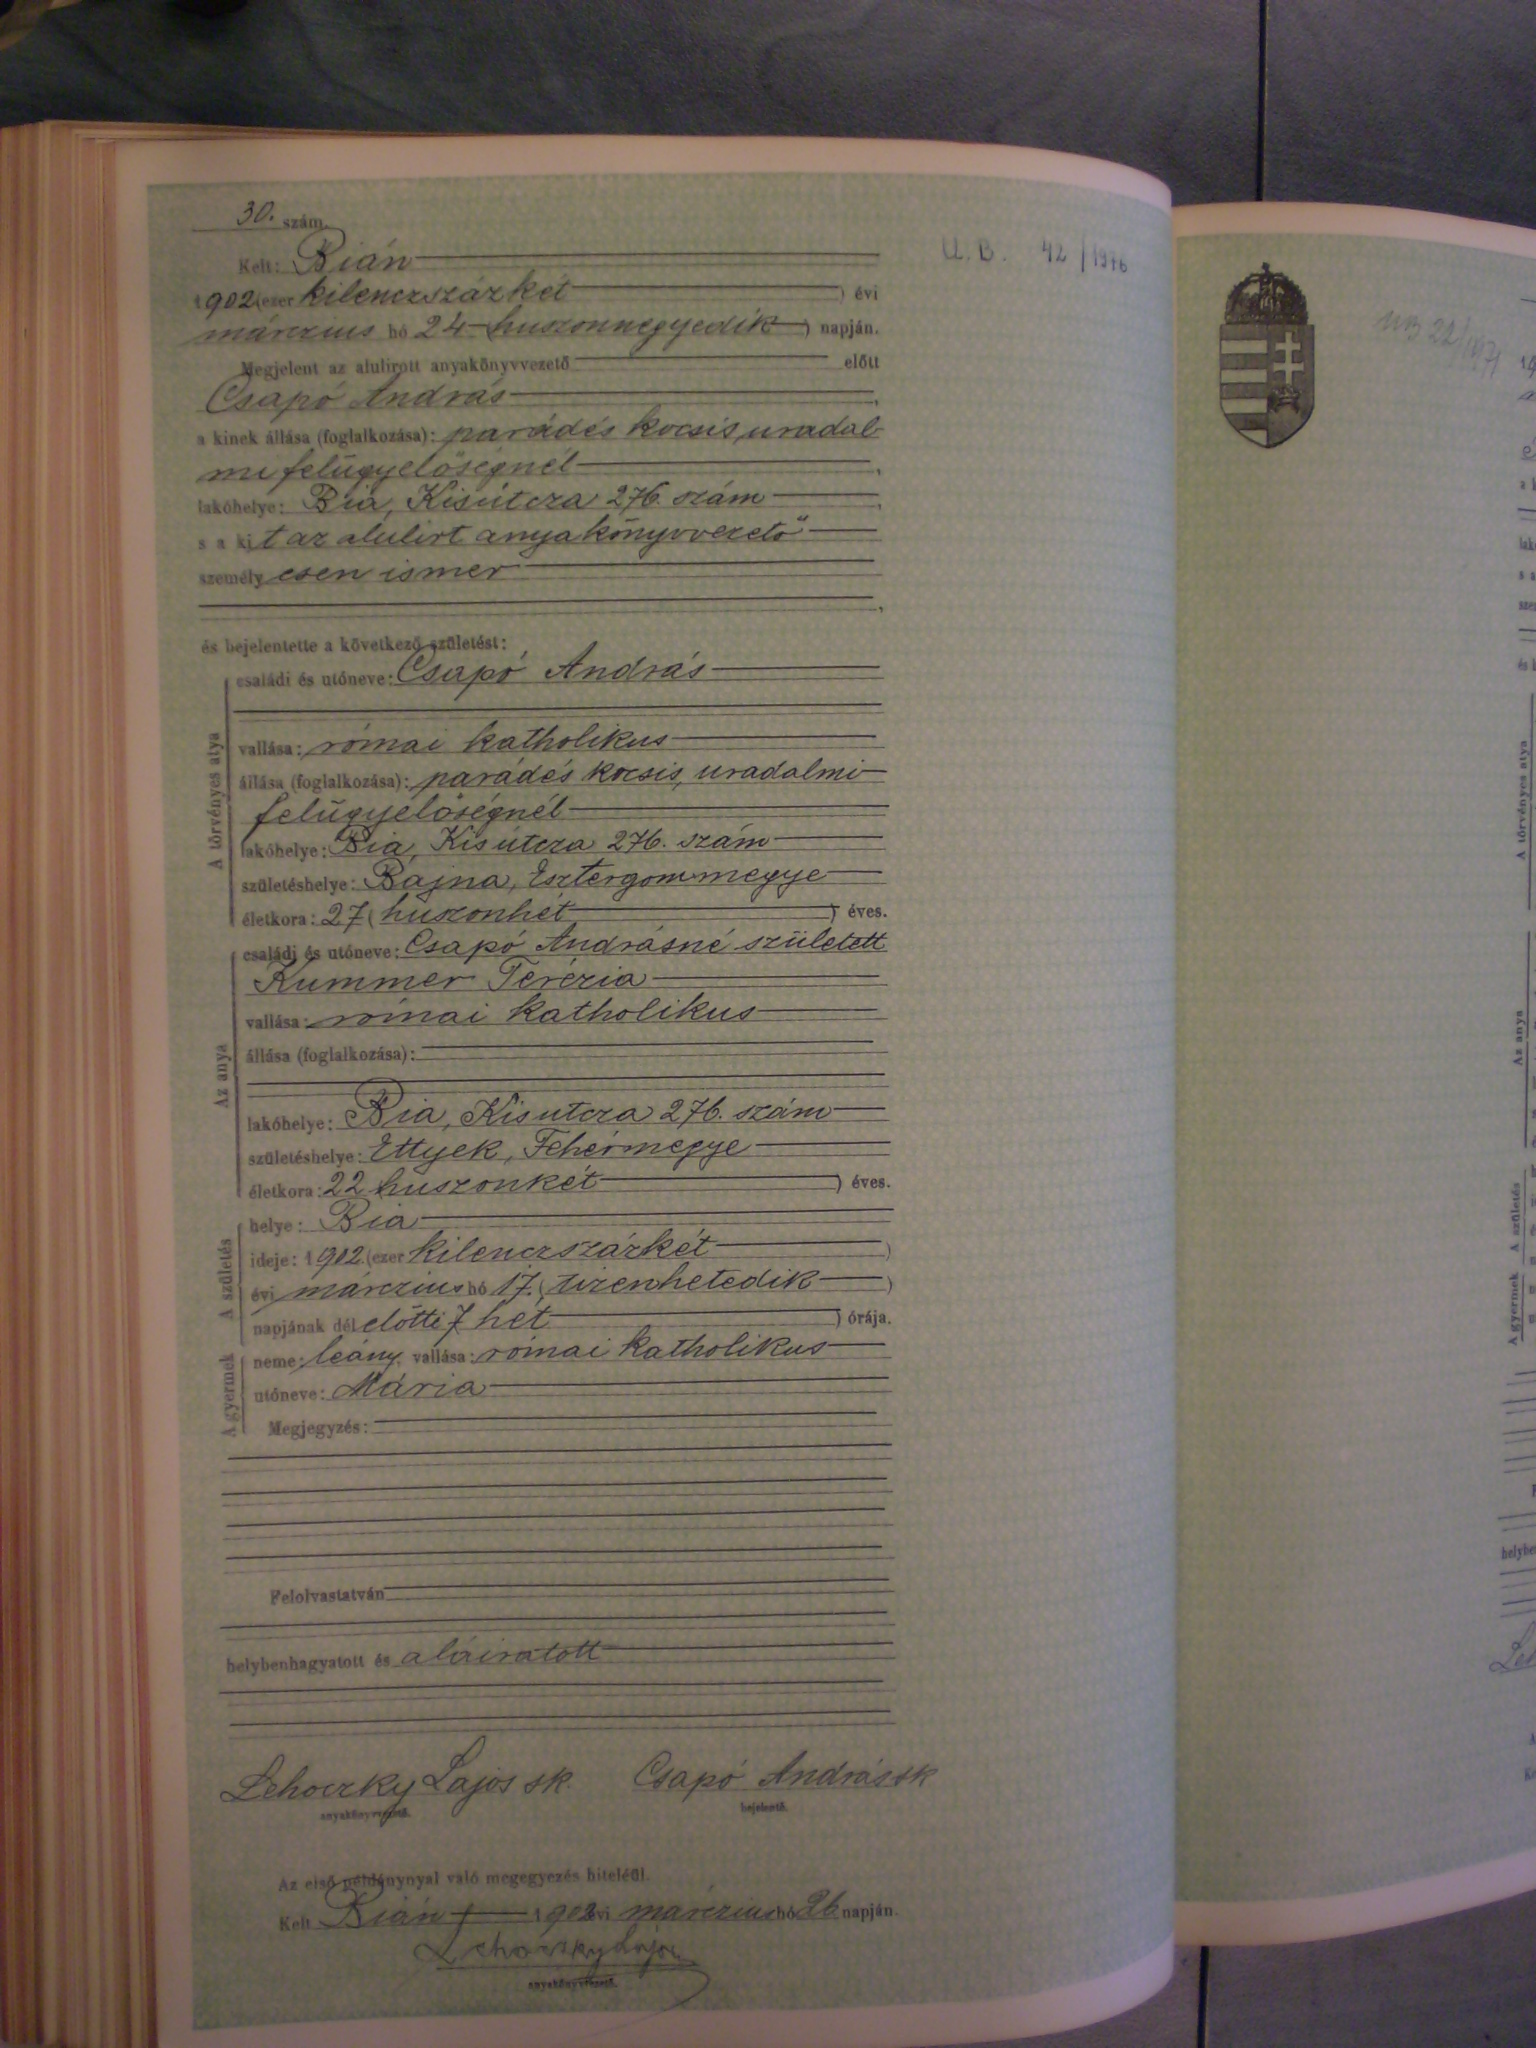 30. szám.
U. B. 42/1976
Kelt: Bián
1902 (ezer kilenczszázkét) évi
márczius hó 24 huszonnegyedik) napján.
Megjelent az alulirott anyakönyvvezető előtt
Csapó András,
a kinek állása (foglalkozása): parádés kocsis, uradal-
mi felügyelőségnél,
lakóhelye: Bia, Kisútcza 276. szám,
s a kit az alulirt anyakönyvvezető
személyesen ismer
és bejelentette a következő születést:
A törvényes atya
családi és utóneve: Csapó András
vallása: római katholikus
állása (foglalkozása): parádés kocsis, uradalmi
felügyelőségnél
lakóhelye: Bia, Kisútcza 276. szám
születéshelye: Bajna, Esztergommegye
életkora: 27 (huszonhét) éves.
Az anya
családi és utóneve: Csapó Andrásné született
Kummer Terézia
vallása: római katholikus
állása (foglalkozása):
lakóhelye: Bia, Kisutcza 276. szám
születéshelye: Ettyek, Fehérmegye
életkora: 22 huszonkét) éves.
A születés
helye: Bia
ideje: 1902. (ezer kilenczszázkét)
évi márczius hó 17. (tizenhetedik)
napjának dél előtti 7 hét) órája.
A gyermek
neme: leány, vallása: római katholikus
utóneve: Mária
Megjegyzés:
Felolvastatván
helybenhagyatott és aláiratott
Lehoczky Lajos sk. Csapó András sk
anyakönyvvezető. bejelentő.
Az első példánynyal való megegyezés hiteléül.
Kelt Bián 1902 évi márczius hó 26 napján.
Lehoczky Lajos
anyakönyvvezető.
A törvényes atya
Az anya
A születés
A gyermek